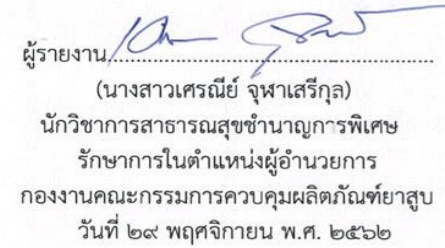 ผู้รายงาน.....................................................
(นางสาวเศรณีย์ จุฬาเสรีกุล)
นักวิชาการสาธารณสุขชำนาญการพิเศษ
รักษาการในตำแหน่งผู้อำนวยการ
กองงานคณะกรรมการควบคุมผลิตภัณฑ์ยาสูบ
วันที่ ๒๙ พฤศจิกายน พ.ศ. ๒๕๖๒